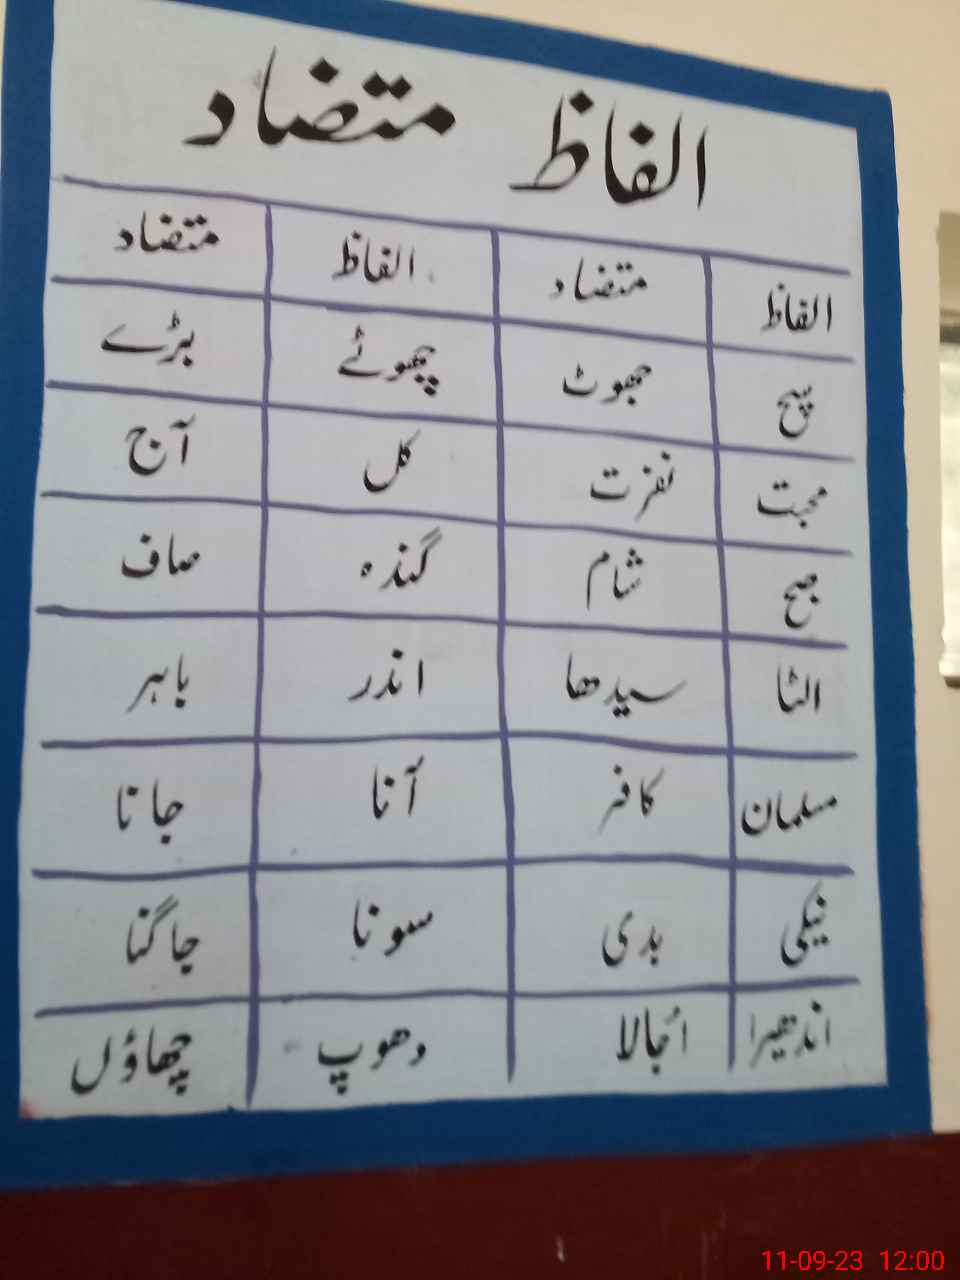 الفاظ متضاد
الفاظ متضاد الفاظ متضاد
سچ جھوٹ چھوٹے بڑے
محبت نفرت کل آج
صبح شام گندہ صاف
الٹا سیدھا اندر باہر
مسلمان کافر آنا جانا
نیکی بدی سونا جاگنا
اندھیرا اُجالا دھوپ چھاؤں
11-09-23 12:00